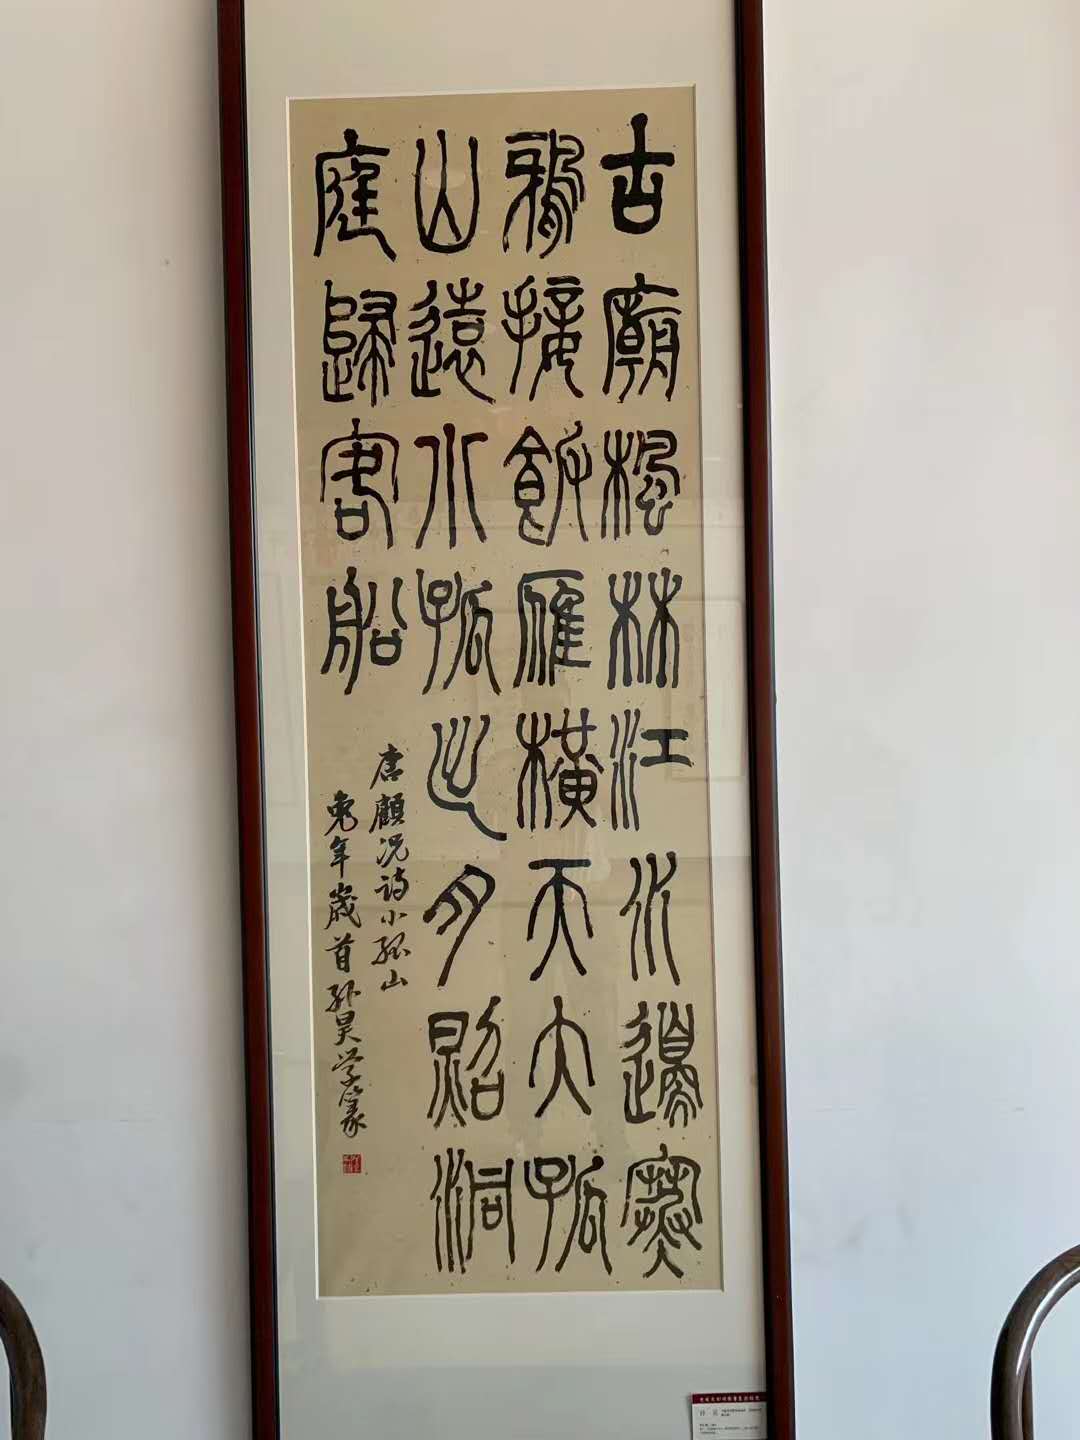 古廟楓林江水邊寒
鴉接飯雁橫天大孤
山遠小孤出月照洞
庭歸客船
唐顧況詩小孤山
兔年歲首孫昊学篆